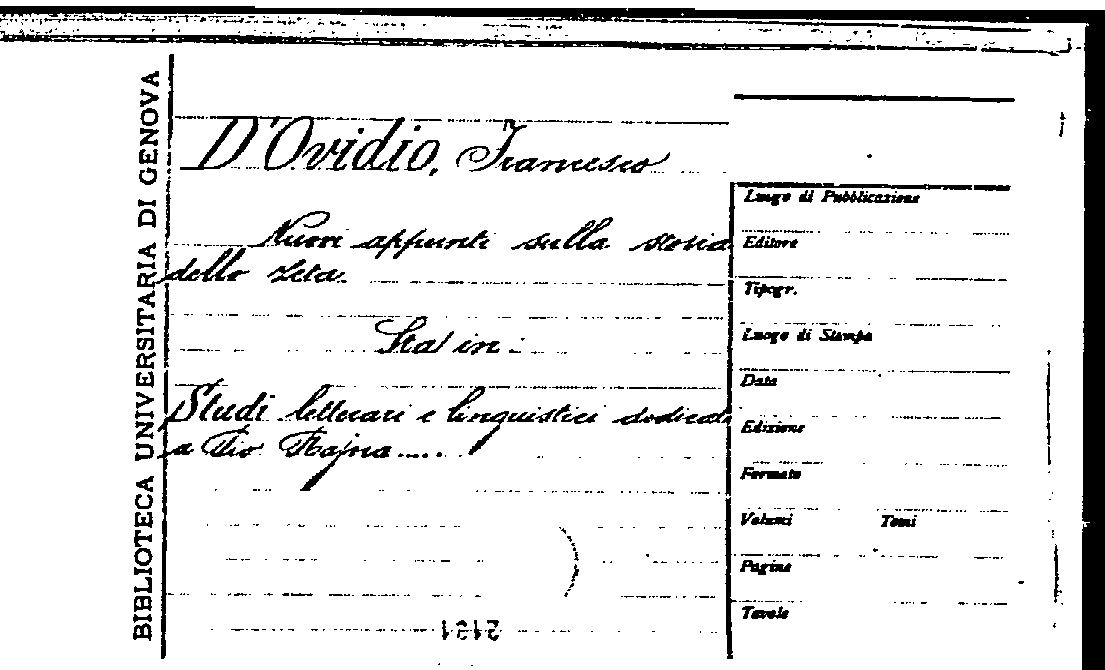 BIBLIOTECA UNIVERSITARIA DI GENOVA
D'Ovidio, Francesco
Nuovi appunti sulla storia
dello zeta.
Sta in:
Studi letterari e linguistici dedicati
a Pio Rajna.....
Luogo di Pubblicazione
Editore
Tipogr.
Luogo di Stampa
Data
Edizione
Formato
Volumi Tomi
Pagine
Tavole